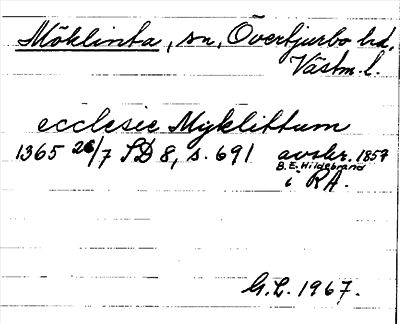 Möklinta, sn, Övertjurbo hd,
Västm. l.
ecclesie Myklittum
1365 26/7 SD 8, s. 691 avskr. 1857
B.E. Hildebrand
i RA.
G.L. 1967.